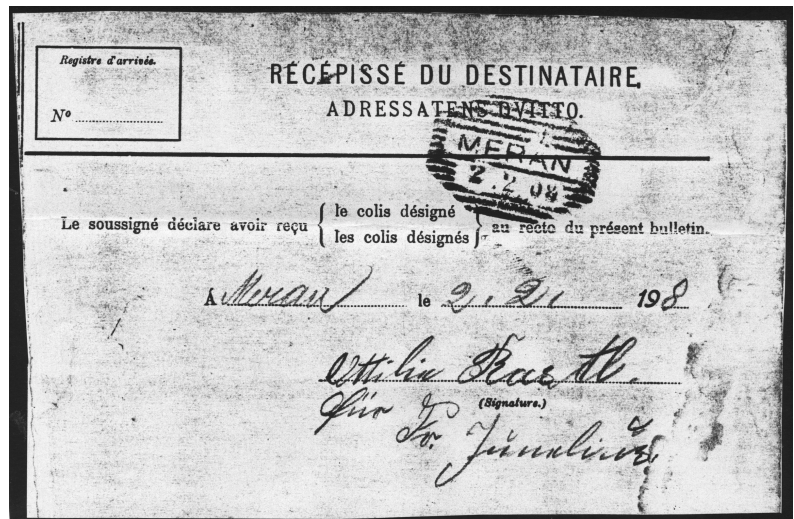 Registre d'arrivée.
Nº
RÉCÉPISSÉ DU DESTINATAIRE,
ADRESSATENS QVITTO.
MERAN
2.2.08
Le soussigné déclare avoir reçu { le colis désigné / les colis désignés } au recto du présent bulletin.
À Meran le 2. 2. 198
Ottilie
(Signature.)
für Fr.